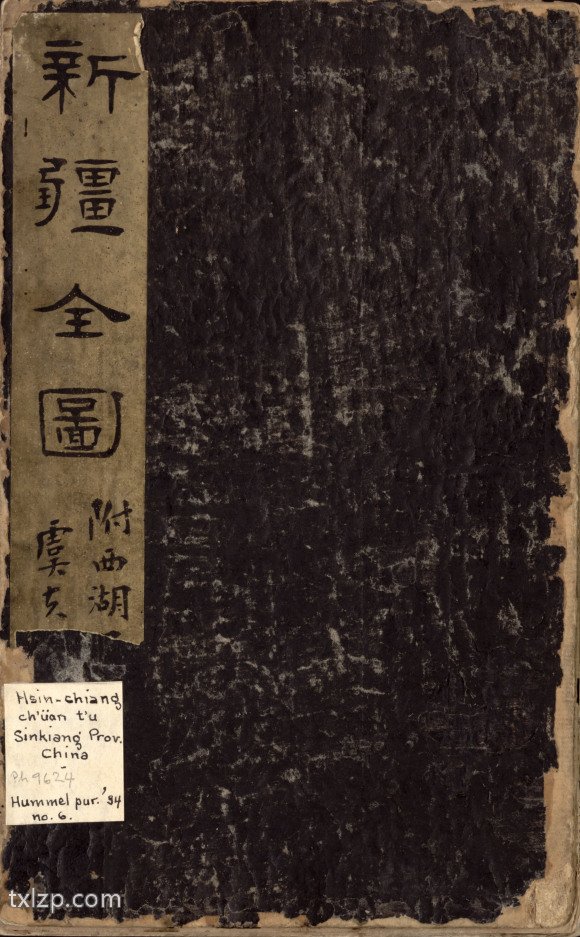 新疆全圖
附西湖
虞
Hsin-chiang
ch'üan t'u
Sinkiang Prov.
China
Ph 9624
Hummel pur. '34
no. 6.
txlzp.com